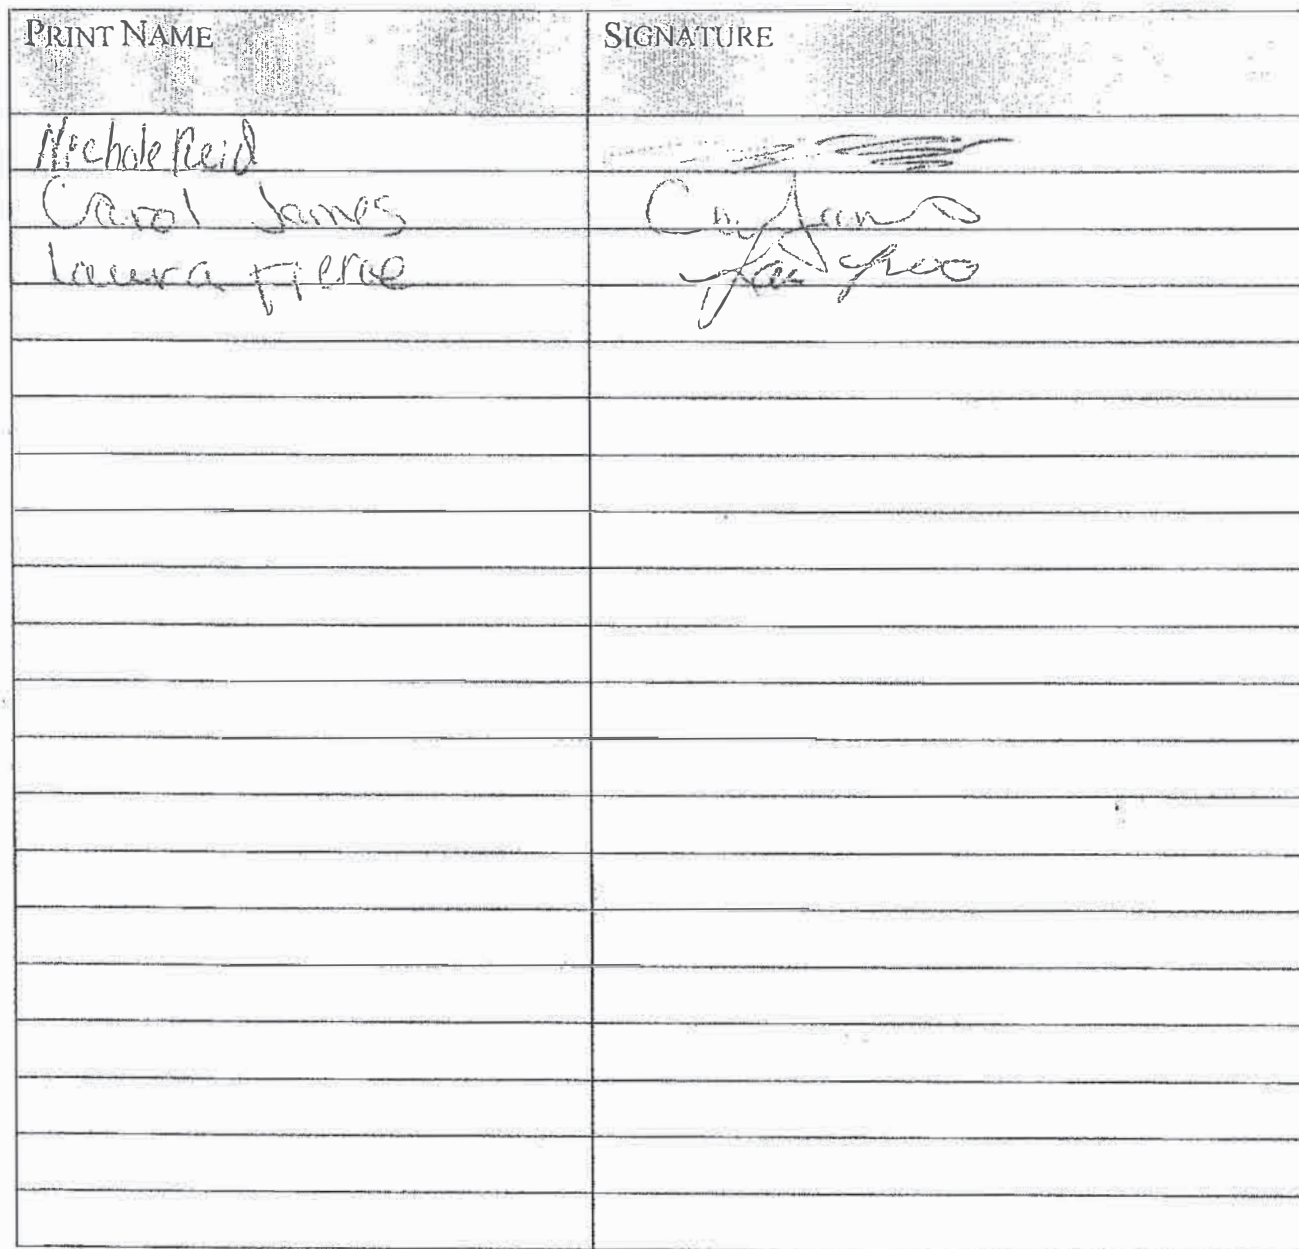 PRINT NAME SIGNATURE
Nichole Reid
Carol James
Laura Pierce